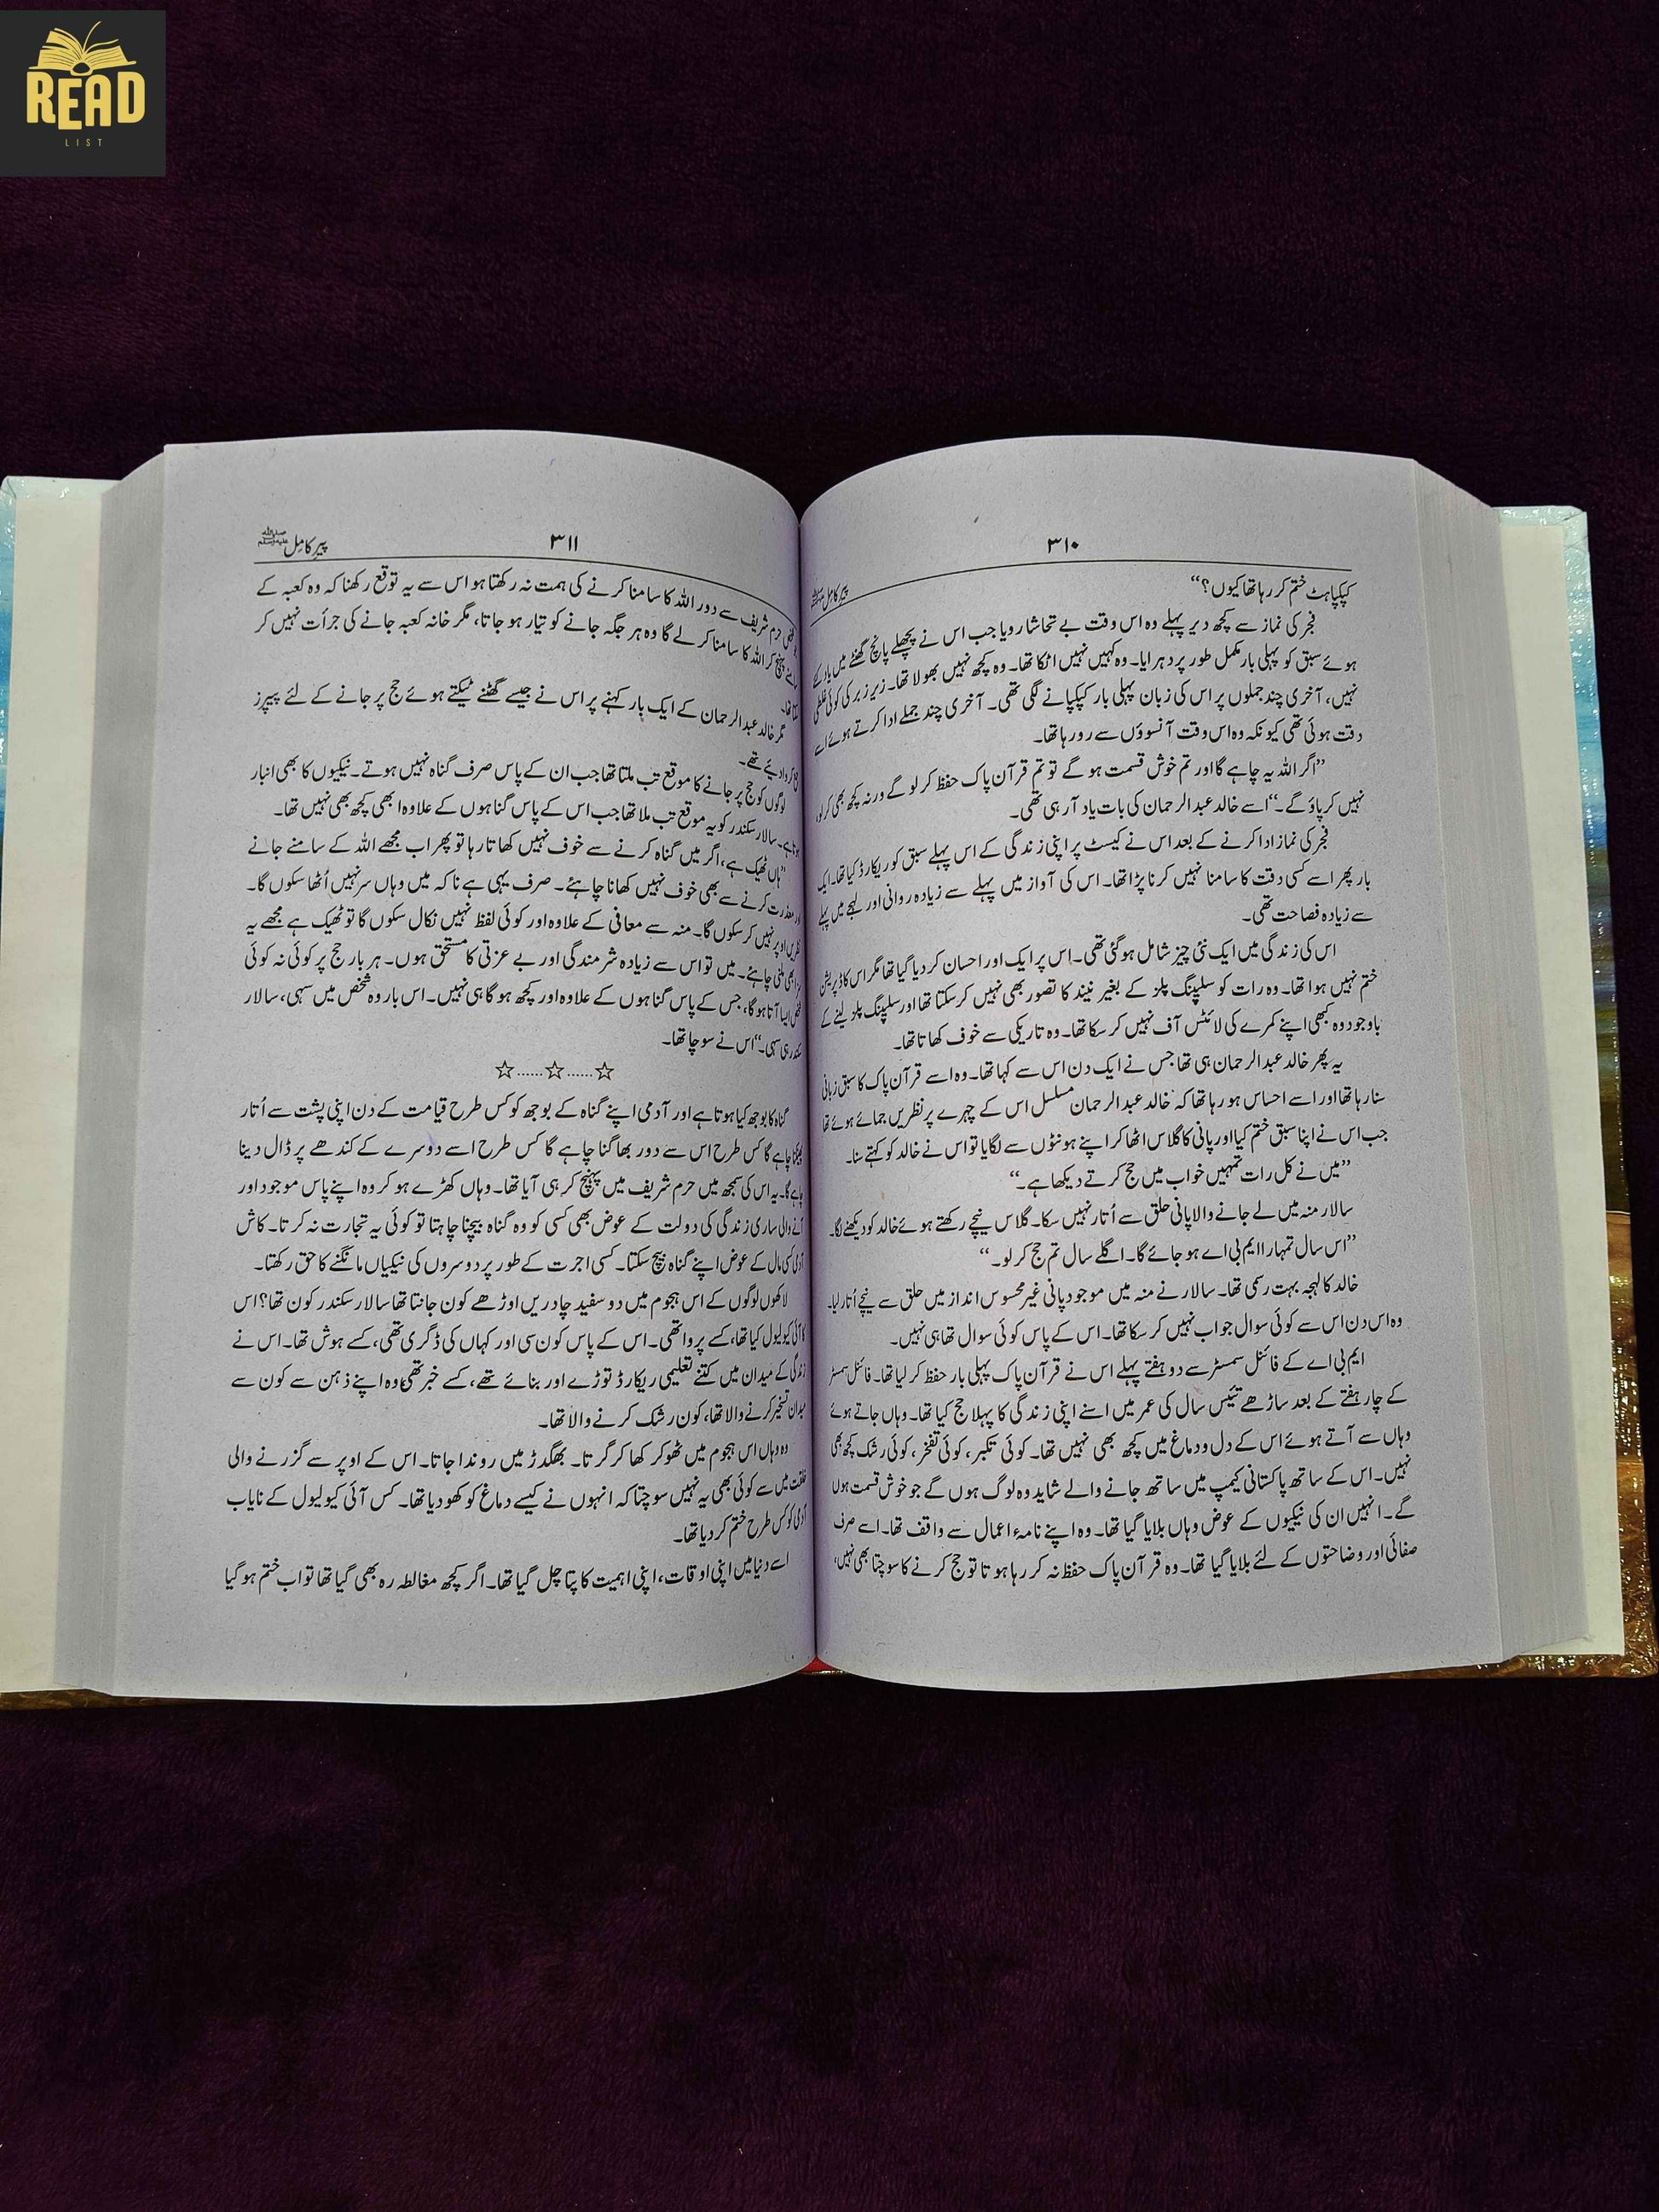 READ
LIST
۳۱۰
پیرِ کامل ﷺ
کپکپاہٹ ختم کر رہا تھا کیوں؟‘‘
فجر کی نماز سے کچھ دیر پہلے وہ اس وقت بے تحاشا رویا جب اس نے پچھلے پانچ گھنٹے میں یاد کئے
ہوئے سبق کو پہلی بار مکمل طور پر دہرایا۔ وہ کہیں نہیں اٹکا تھا۔ وہ کچھ نہیں بھولا تھا۔ زیر زبر کی کوئی غلطی
نہیں، آخری چند جملوں پر اس کی زبان پہلی بار کپکپانے لگی تھی۔ آخری چند جملے ادا کرتے ہوئے اسے
دقت ہوئی تھی کیونکہ وہ اس وقت آنسوؤں سے رو رہا تھا۔
’’اگر اللہ یہ چاہے گا اور تم خوش قسمت ہو گے تو تم قرآن پاک حفظ کر لو گے ورنہ کچھ بھی کر لو،
نہیں کر پاؤ گے۔‘‘ اسے خالد عبدالرحمان کی بات یاد آ رہی تھی۔
فجر کی نماز ادا کرنے کے بعد اس نے کیسٹ پر اپنی زندگی کے اس پہلے سبق کو ریکارڈ کیا تھا۔ ایک
بار پھر اسے کسی دقت کا سامنا نہیں کرنا پڑا تھا۔ اس کی آواز میں پہلے سے زیادہ روانی اور لہجے میں پہلے
سے زیادہ فصاحت تھی۔
اس کی زندگی میں ایک نئی چیز شامل ہو گئی تھی۔ اس پر ایک اور احسان کر دیا گیا تھا مگر اس کا ڈپریشن
ختم نہیں ہوا تھا۔ وہ رات کو سلیپنگ پلز کے بغیر نیند کا تصور بھی نہیں کر سکتا تھا اور سلیپنگ پلز لینے کے
باوجود وہ کبھی اپنے کمرے کی لائٹس آف نہیں کر سکا تھا۔ وہ تاریکی سے خوف کھاتا تھا۔
یہ پھر خالد عبدالرحمان ہی تھا جس نے ایک دن اس سے کہا تھا۔ وہ اسے قرآن پاک کا سبق زبانی
سنا رہا تھا اور اسے احساس ہو رہا تھا کہ خالد عبدالرحمان مسلسل اس کے چہرے پر نظریں جمائے ہوئے تھا
جب اس نے اپنا سبق ختم کیا اور پانی کا گلاس اٹھا کر اپنے ہونٹوں سے لگایا تو اس نے خالد کو کہتے سنا۔
’’میں نے کل رات تمہیں خواب میں حج کرتے دیکھا ہے۔‘‘
سالار منہ میں لے جانے والا پانی حلق سے اُتار نہیں سکا۔ گلاس نیچے رکھتے ہوئے خالد کو دیکھنے لگا۔
’’اس سال تمہارا ایم بی اے ہو جائے گا۔ اگلے سال تم حج کر لو۔‘‘
خالد کا لہجہ بہت رسمی تھا۔ سالار نے منہ میں موجود پانی غیر محسوس انداز میں حلق سے نیچے اُتار لیا۔
وہ اس دن اس سے کوئی سوال جواب نہیں کر سکا تھا۔ اس کے پاس کوئی سوال تھا ہی نہیں۔
ایم بی اے کے فائنل سمسٹر سے دو ہفتے پہلے اس نے قرآن پاک پہلی بار حفظ کر لیا تھا۔ فائنل سمسٹر
کے چار ہفتے کے بعد ساڑھے تئیس سال کی عمر میں اسنے اپنی زندگی کا پہلا حج کیا تھا۔ وہاں جاتے ہوئے
وہاں سے آتے ہوئے اس کے دل و دماغ میں کچھ بھی نہیں تھا۔ کوئی تکبر، کوئی تفخر، کوئی رشک کچھ بھی
نہیں۔ اس کے ساتھ پاکستانی کیمپ میں ساتھ جانے والے شاید وہ لوگ ہوں گے جو خوش قسمت ہوں
گے۔ انہیں ان کی نیکیوں کے عوض وہاں بلایا گیا تھا۔ وہ اپنے نامۂ اعمال سے واقف تھا۔ اسے صرف
صفائی اور وضاحتوں کے لئے بلایا گیا تھا۔ وہ قرآن پاک حفظ نہ کر رہا ہوتا تو حج کرنے کا سوچتا بھی نہیں،
۳۱۱
پیرِ کامل ﷺ
حرم شریف سے دور اللہ کا سامنا کرنے کی ہمت نہ رکھتا ہو اس سے یہ توقع رکھنا کہ وہ کعبہ کے
پہنچ کر اللہ کا سامنا کر لے گا وہ ہر جگہ جانے کو تیار ہو جاتا، مگر خانہ کعبہ جانے کی جرأت نہیں کر
سکتا تھا۔
مگر خالد عبدالرحمان کے ایک بار کہنے پر اس نے جیسے گھٹنے ٹیکتے ہوئے حج پر جانے کے لئے پیپرز
جمع کروا دیئے تھے۔
لوگوں کو حج پر جانے کا موقع تب ملتا تھا جب ان کے پاس صرف گناہ نہیں ہوتے۔ نیکیوں کا بھی انبار
ہوتا ہے۔ سالار سکندر کو یہ موقع تب ملا تھا جب اس کے پاس گناہوں کے علاوہ ابھی کچھ بھی نہیں تھا۔
’’ہاں ٹھیک ہے، اگر میں گناہ کرنے سے خوف نہیں کھاتا رہا تو پھر اب مجھے اللہ کے سامنے جانے
اور معذرت کرنے سے بھی خوف نہیں کھانا چاہئے۔ صرف یہی ہے ناکہ میں وہاں سر نہیں اُٹھا سکوں گا۔
نظریں اوپر نہیں کر سکوں گا۔ منہ سے معافی کے علاوہ اور کوئی لفظ نہیں نکال سکوں گا تو ٹھیک ہے مجھے یہ
سزا بھی ملنی چاہئے۔ میں تو اس سے زیادہ شرمندگی اور بے عزتی کا مستحق ہوں۔ ہر بار حج پر کوئی نہ کوئی
شخص ایسا آتا ہو گا، جس کے پاس گناہوں کے علاوہ اور کچھ ہو گا ہی نہیں۔ اس بار وہ شخص میں سہی، سالار
سکندر ہی سہی۔‘‘ اس نے سوچا تھا۔
☆……☆……☆
گناہ کا بوجھ کیا ہوتا ہے اور آدمی اپنے گناہ کے بوجھ کو کس طرح قیامت کے دن اپنی پشت سے اُتار
پھینکنا چاہے گا کس طرح اس سے دور بھاگنا چاہے گا کس طرح اسے دوسرے کے کندھے پر ڈال دینا
چاہے گا۔ یہ اس کی سمجھ میں حرم شریف میں پہنچ کر ہی آیا تھا۔ وہاں کھڑے ہو کر وہ اپنے پاس موجود اور
آنے والی ساری زندگی کی دولت کے عوض بھی کسی کو وہ گناہ بیچنا چاہتا تو کوئی یہ تجارت نہ کرتا۔ کاش
آدمی کسی مال کے عوض اپنے گناہ بیچ سکتا۔ کسی اجرت کے طور پر دوسروں کی نیکیاں مانگنے کا حق رکھتا۔
لاکھوں لوگوں کے اس ہجوم میں دو سفید چادریں اوڑھے کون جانتا تھا سالار سکندر کون تھا؟ اس
کا آئی کیو لیول کیا تھا، کسے پروا تھی۔ اس کے پاس کون سی اور کہاں کی ڈگری تھی، کسے ہوش تھا۔ اس نے
زندگی کے میدان میں کتنے تعلیمی ریکارڈ توڑے اور بنائے تھے، کسے خبر تھی وہ اپنے ذہن سے کون سے
میدان تسخیر کرنے والا تھا، کون رشک کرنے والا تھا۔
وہ وہاں اس ہجوم میں ٹھوکر کھا کر گرتا۔ بھگدڑ میں روندا جاتا۔ اس کے اوپر سے گزرنے والی
خلقت میں سے کوئی بھی یہ نہیں سوچتا کہ انہوں نے کیسے دماغ کو کھو دیا تھا۔ کس آئی کیو لیول کے نایاب
آدمی کو کس طرح ختم کر دیا تھا۔
اسے دنیا میں اپنی اوقات، اپنی اہمیت کا پتا چل گیا تھا۔ اگر کچھ مغالطہ رہ بھی گیا تھا تو اب ختم ہو گیا